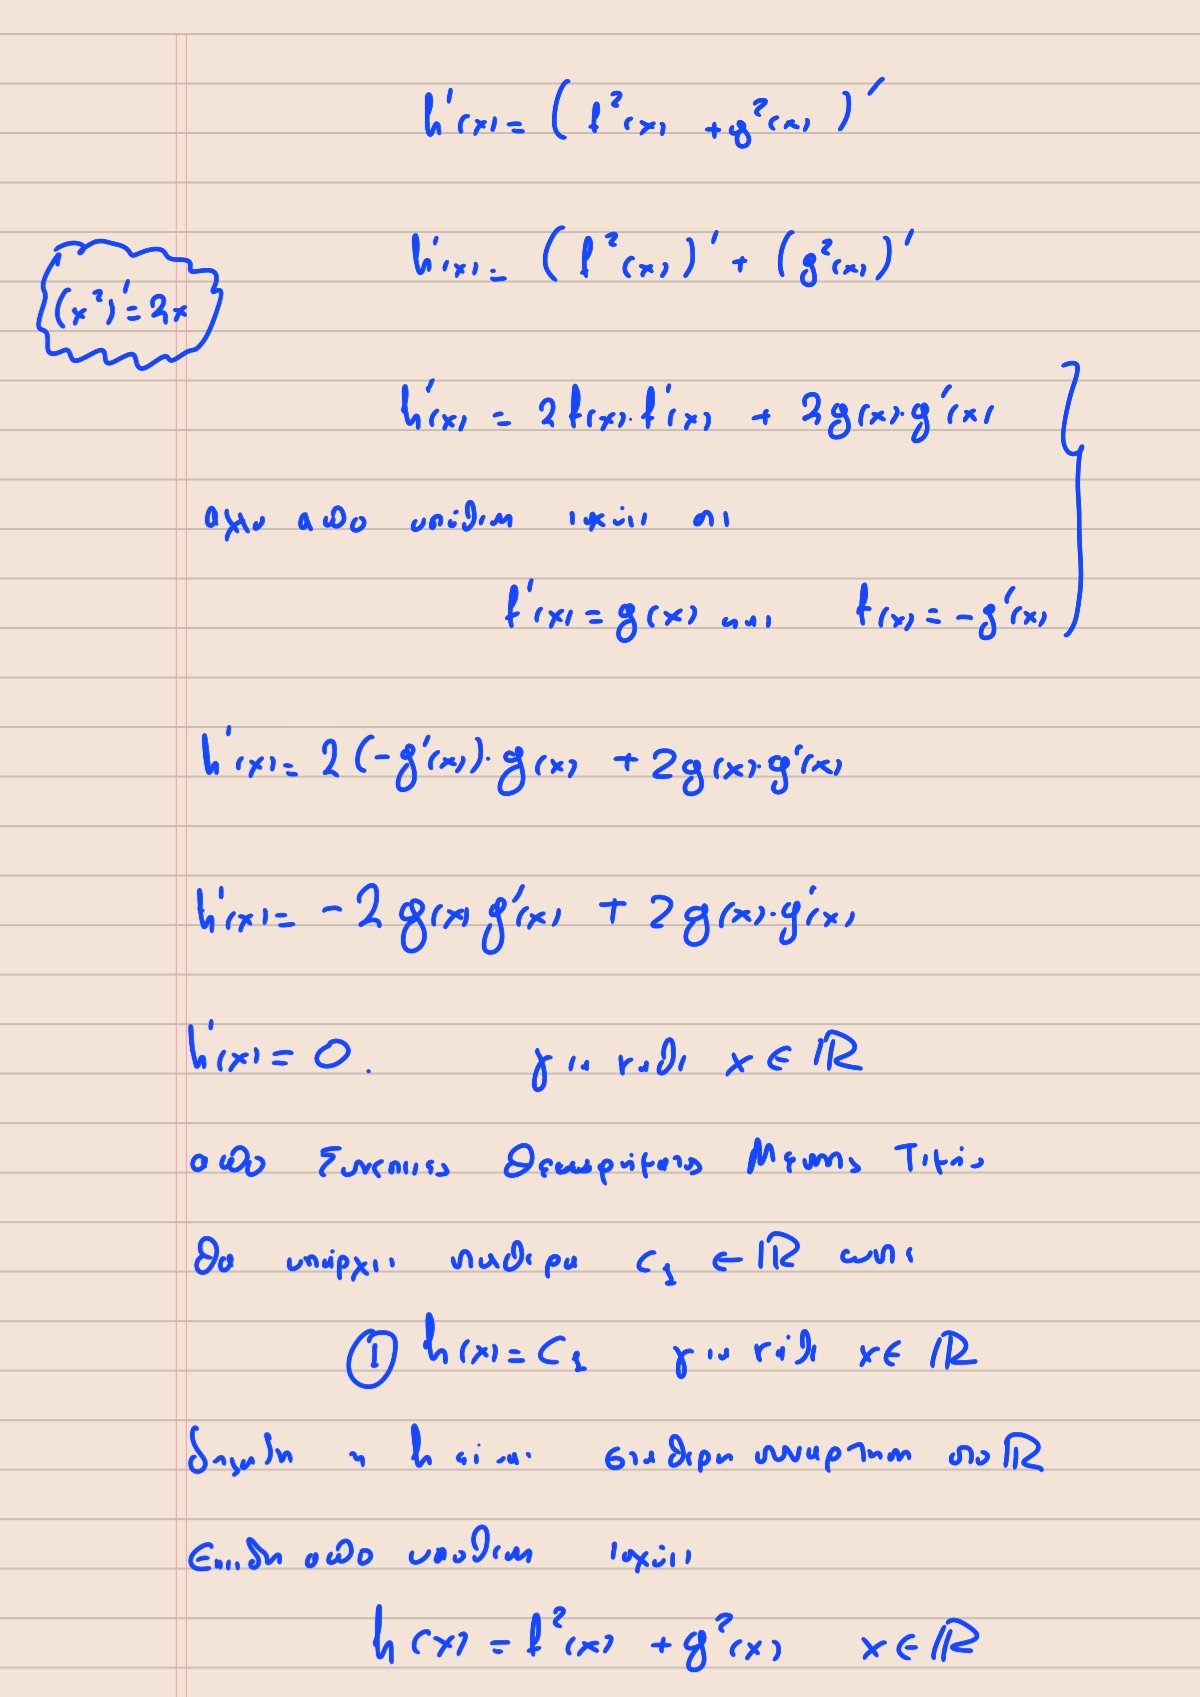 h'(x) = ( f²(x) + g²(x) )'
h'(x) = ( f²(x) )' + ( g²(x) )'
(x²)' = 2x
h'(x) = 2f(x)·f'(x) + 2g(x)·g'(x)
από υπόθεση ισχύει οτι
f'(x) = g(x) και f(x) = -g'(x)
h'(x) = 2(-g'(x))·g(x) + 2g(x)·g'(x)
h'(x) = -2g(x)g'(x) + 2g(x)·g'(x)
h'(x) = 0. για κάθε x ∈ ℝ
από Συνέπειες Θεωρήματος Μέσης Τιμής
θα υπάρχει σταθερα c₁ ∈ ℝ ωστε
① h(x) = c₁ για κάθε x ∈ ℝ
δηλαδη η h είναι σταθερη συναρτηση στο ℝ
Επειδη από υποθεση ισχύει
h(x) = f²(x) + g²(x) x ∈ ℝ